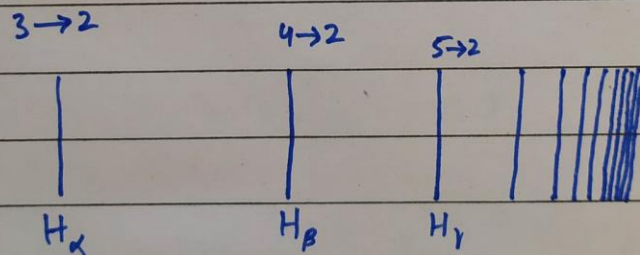 3→2 4→2 5→2
Hα Hβ Hγ